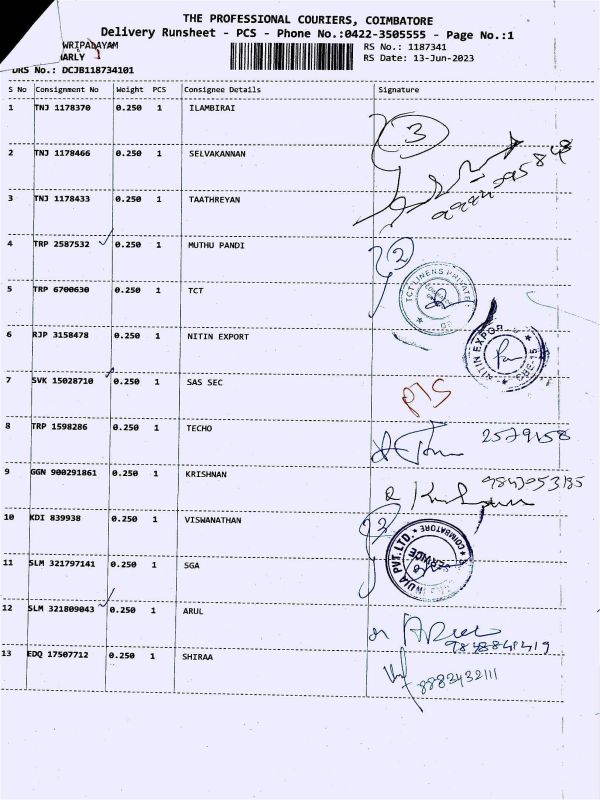 THE PROFESSIONAL COURIERS, COIMBATORE
Delivery Runsheet - PCS - Phone No.:0422-3505555 - Page No.:1
WRIPALAYAM
ARLY
RS No.: 1187341
RS Date: 13-Jun-2023
DRS No.: DCJB118734101
S No Consignment No Weight PCS Consignee Details Signature
1 TNJ 1178370 0.250 1 ILAMBIRAI
3
2 TNJ 1178466 0.250 1 SELVAKANNAN
3 TNJ 1178433 0.250 1 TAATHREYAN
4 TRP 2587532 0.250 1 MUTHU PANDI
2
5 TRP 6700630 0.250 1 TCT
TCT LINENS PRIVATE
6 RJP 3158478 0.250 1 NITIN EXPORT
NITIN EXPOR
CBE-15
7 SVK 15028710 0.250 1 SAS SEC
8 TRP 1598286 0.250 1 TECHO
2579158
9 GGN 900291861 0.250 1 KRISHNAN
10 KDI 839938 0.250 1 VISWANATHAN
11 SLM 321797141 0.250 1 SGA
INDIA PVT.LTD. * COIMBATORE *
SERVICE
12 SLM 321809043 0.250 1 ARUL
13 EDQ 17507712 0.250 1 SHIRAA
8883432111